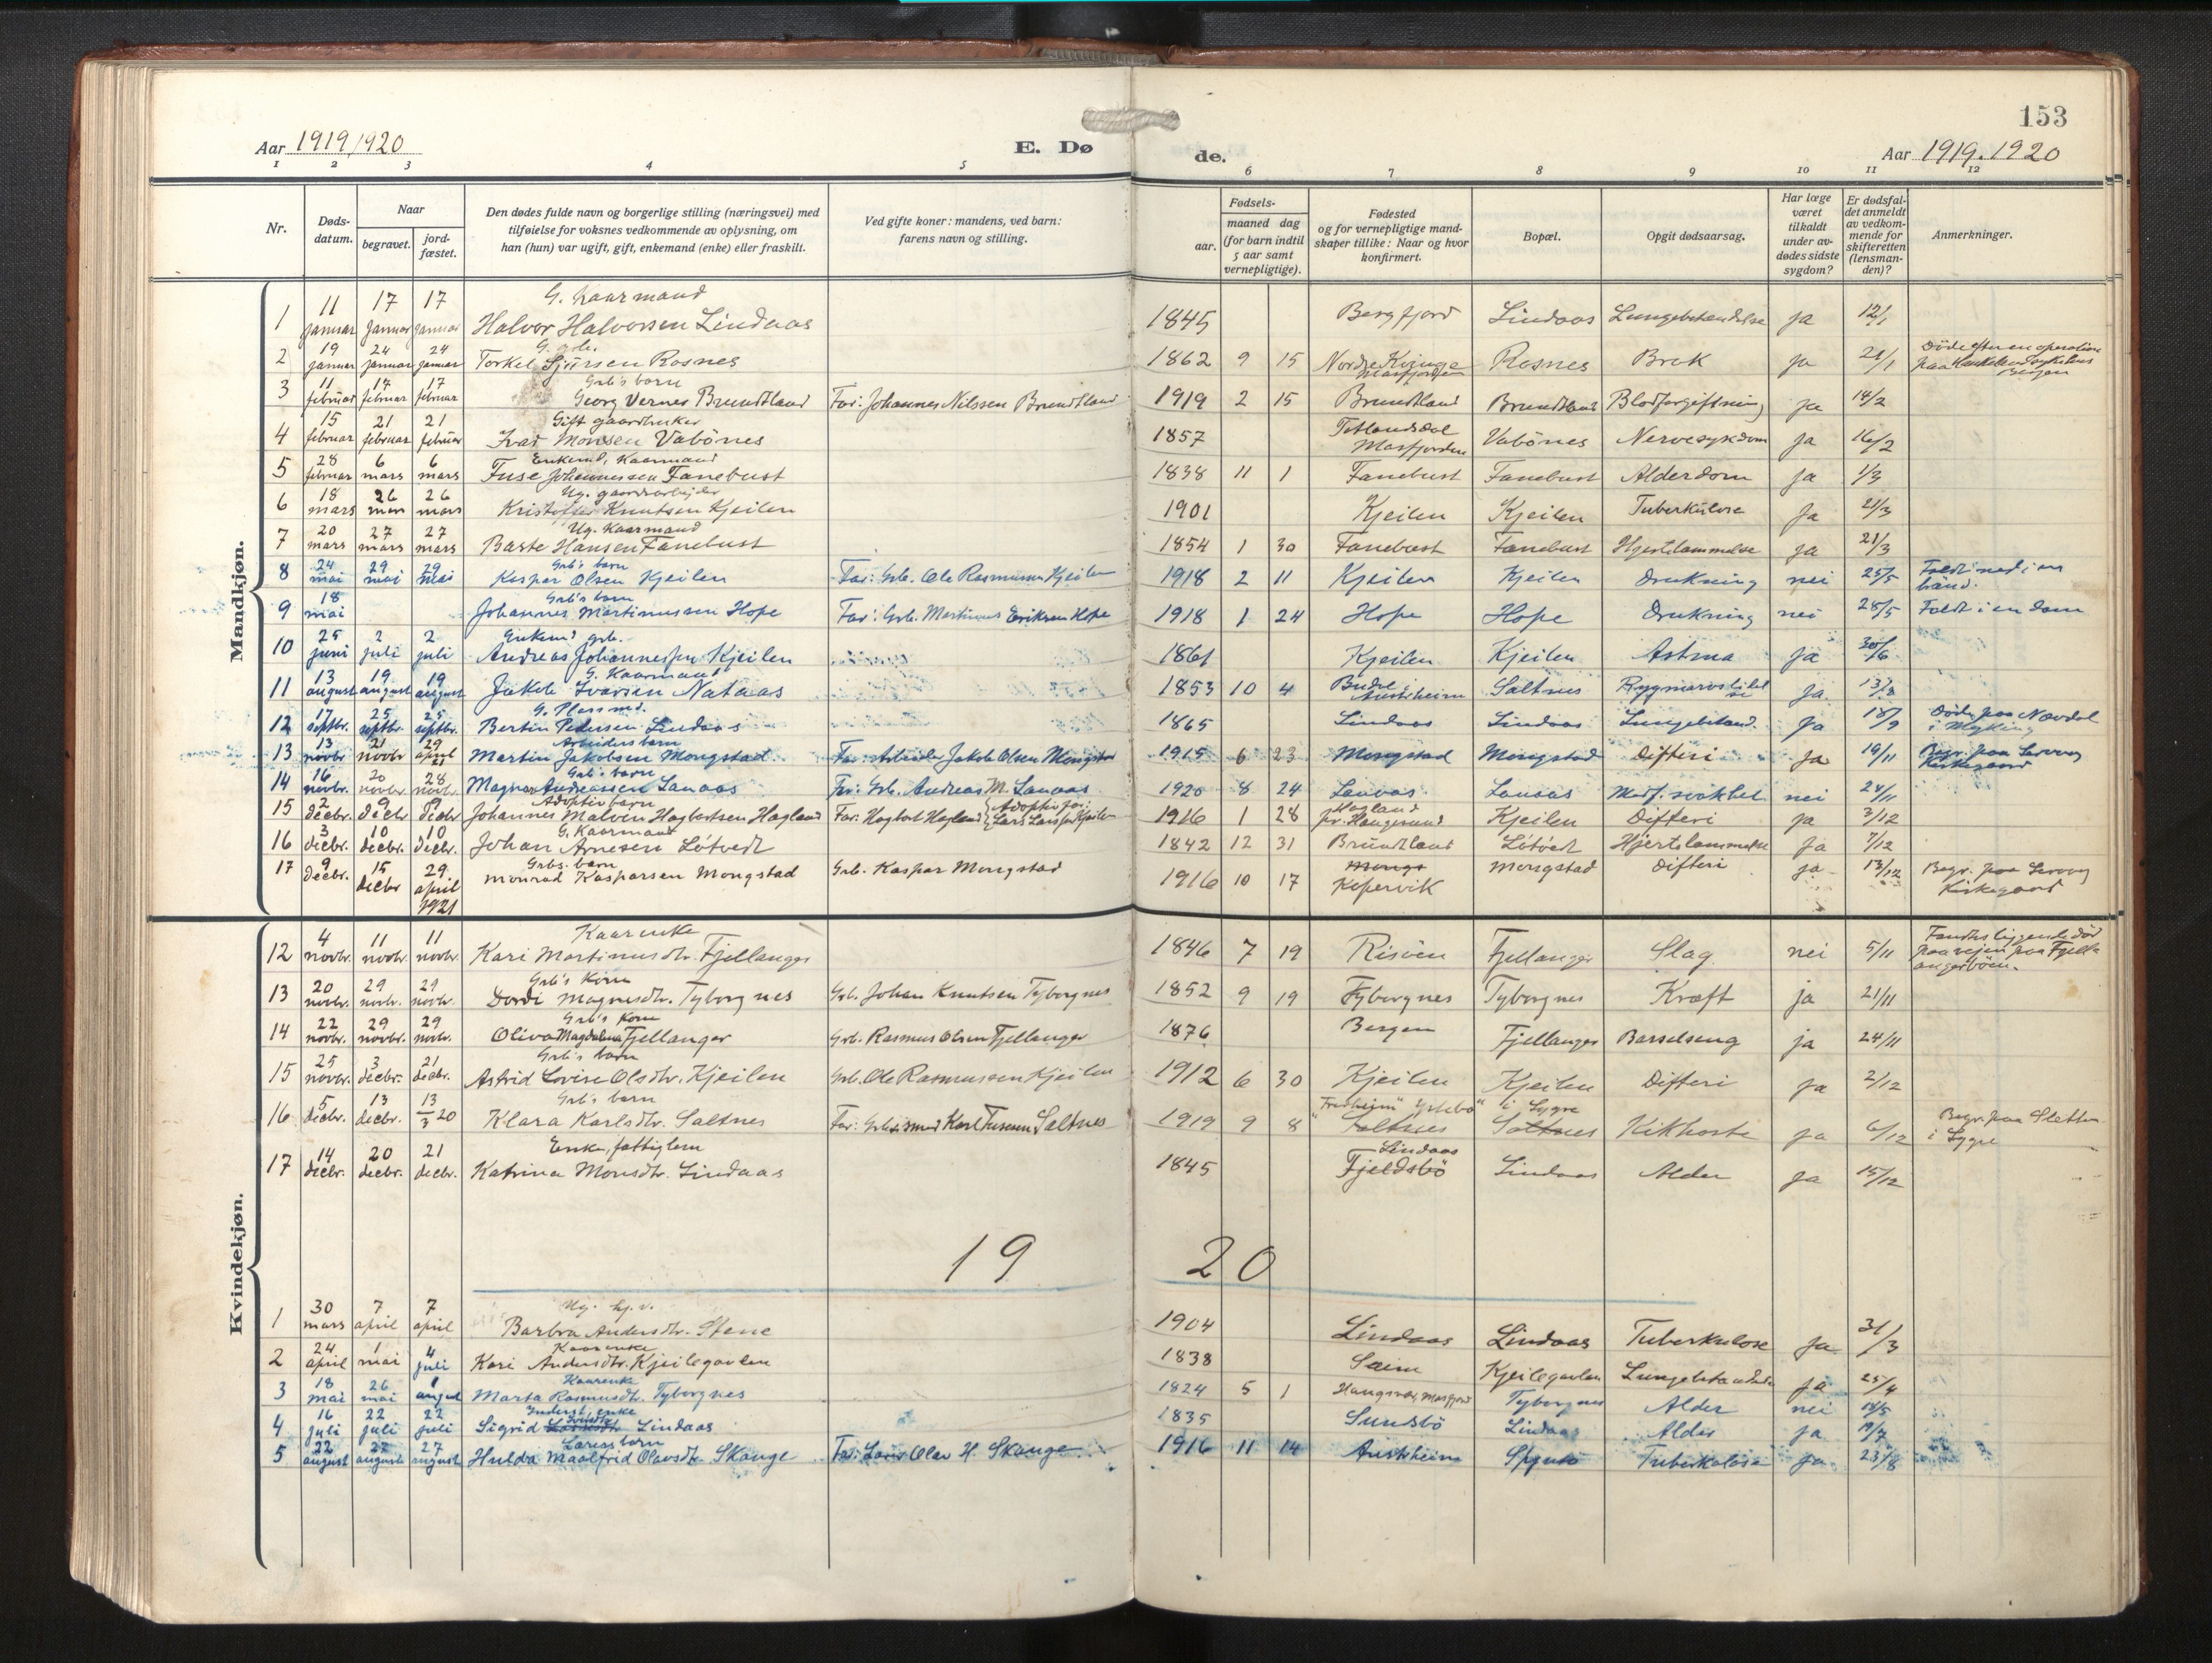 153
Aar 1919/1920
E. Dø
de.
Aar 1919. 1920
1 2 3 4 5 6 7 8 9 10 11 12
Nr.
Døds-
datum.
Naar
begravet.
jord-
fæstet.
Den dødes fulde navn og borgerlige stilling (næringsvei) med
tilføielse for voksnes vedkommende av oplysning, om
han (hun) var ugift, gift, enkemand (enke) eller fraskilt.
Ved gifte koner: mandens, ved barn:
farens navn og stilling.
Fødsels-
aar.
maaned dag
(for barn indtil
5 aar samt
vernepligtige).
Fødested
og for vernepligtige mand-
skaper tillike: Naar og hvor
konfirmert.
Bopæl.
Opgit dødsaarsag.
Har læge
været
tilkaldt
under av-
dødes sidste
sygdom?
Er dødsfal-
det anmeldt
av vedkom-
mende for
skifteretten
(lensman-
den)?
Anmerkninger.
Mandkjøn.
G. Kaarmand
1 11 januar 17 januar 17 januar Halvor Halvorsen Lindaas 1845 Bergfjord Lindaas Lungebetændelse ja 12/1
G. grb.
2 19 januar 24 januar 24 januar Torkel Sjursen Rosnes 1862 9 15 Nordre Kvinge Masfjorden Rosnes Brok ja 21/1 Döde efter en operation paa Haukelandsykehus Bergen
Grb's barn
3 11 februar 17 februar 17 februar Georg Vernes Brundtland Far: Johannes Nilssen Brundtland 1919 2 15 Brundtland Brundtland Blodforgiftning ja 14/2
Gift gaardbruker
4 15 februar 21 februar 21 februar Ivar Monsen Vabönes 1857 Masfjorden Vabönes Nervesykdom ja 16/2
Enkem., Kaarmand
5 28 februar 6 mars 6 mars Tuse Johannessen Fanebust 1838 11 1 Fanebust Fanebust Alderdom ja 1/3
Ug. gaardsarbejder
6 18 mars 26 mars 26 mars Kristoffer Knutsen Kjeilen 1901 Kjeilen Kjeilen Tuberkulose ja 21/3
Ug. Kaarmand
7 20 mars 27 mars 27 mars Baste Hansen Fanebust 1854 1 30 Fanebust Fanebust Hjertelammelse ja 21/3
Grb's barn
8 24 mai 29 mai 29 mai Kaspar Olsen Kjeilen Far: Grb. Ole Rasmussen Kjeilen 1918 2 11 Kjeilen Kjeilen Drukning nei 25/5 Faldt ned i en brönd.
Grb's barn
9 18 mai Johannes Martinussen Hope Far: Grb. Martinus Eriksen Hope 1918 1 24 Hope Hope Drukning nei 28/5 Faldt i en dam
Enkem. grb.
10 25 juni 2 juli 2 juli Andreas Johannessen Kjeilen 1861 Kjeilen Kjeilen Astma ja 30/6
G. Kaarmand
11 13 august 19 august 19 august Jakob Ivarsen Nataas 1853 10 4 Austrheim Saltnes Rygmarvslidelse ja 13/8
G. Plassmd.
12 17 septbr. 25 septbr. 25 septbr. Bertin Pedersen Lindaas 1865 Lindaas Lindaas Lungebetænd. ja 18/9 Döde paa Nævdal i Myking
Arbeiders barn
13 13 novbr 21 novbr 29 april Martin Jakobsen Mongstad Far: Arbeider Jakob Olsen Mongstad 1915 6 23 Mongstad Mongstad Difteri ja 19/11 Begr. paa Leroen Kirkegaard
Grb's barn
14 16 novbr. 20 novbr. 28 novbr. Magnar Andreassen Lanaas Far: Grb. Andreas M. Lanaas 1920 8 24 Lanaas Lanaas Medf. svakhet nei 24/11
Adoptivbarn
15 2 decbr. 9 decbr 9 decbr Johannes Malvin Hagbertsen Hagland Far: Hagbert Hagland Adoptivfar: Lars Larssen Kjeilen 1916 1 28 Hagland pr. Haugesund Kjeilen Difteri ja 3/12
G. Kaarmand
16 3 decbr. 10 decbr. 10 decbr. Johan Arnesen Lótvedt 1842 12 31 Brundtland Lótvedt Hjertelammelse ja 7/12
Grbs. barn
17 9 decbr. 15 decbr 29. april 1921 Monrad Kasparsen Mongstad Grb. Kaspar Mongstad 1916 10 17 Mongs Kopervik Mongstad Difteri ja 13/12 Begr. paa Leroen Kirkegaard
Kvindekjøn.
Kaarenke
12 4 novbr. 11 novbr. 11 novbr. Kari Martinusdtr. Fjellanger 1846 7 19 Risöen Fjellanger Slag nei 5/11 Fandtes liggende död paa vejen paa Fjellangerböen.
Grb's Kone
13 20 novbr. 29 novbr. 29 novbr. Dordi Magnusdtr. Tyborgnes Grb. Johan Knutsen Tyborgnes 1852 9 19 Tyborgnes Tyborgnes Kræft ja 21/11
Grb's Kone
14 22 novbr. 29 novbr. 29 novbr. Oliva Magdalena Fjellanger Grb. Rasmus Olsen Fjellanger 1876 Bergen Fjellanger Barselseng ja 24/11
Grb's barn
15 25 novbr. 3 decbr. 21 decbr. Astrid Lovise Olsdtr. Kjeilen Grb. Ole Rasmussen Kjeilen 1912 6 30 Kjeilen Kjeilen Difteri ja 2/12
Grb's barn
16 5 decbr. 13 decbr. 13/3 20 Klara Karlsdtr. Saltnes Far: Karl Tusen Saltnes 1919 9 8 i Lygre Saltnes Saltnes Kikhoste ja 6/12 Begr. paa Sletten i Lygre
Enke, fattiglem
17 14 decbr. 20 decbr. 21 decbr. Katrina Monsdtr. Lindaas 1845 Lindaas Fjeldsbö Lindaas Alder ja 15/12
19 20
Ug. hj. v.
1 30 mars 7 april 7 april Barbra Andersdtr. Stene 1904 Lindaas Lindaas Tuberkulose ja 31/3
Kaarenke
2 24 april 1 mai 4 juli Kari Andersdtr. Kjeilegavlen 1838 Seim Kjeilegavlen Lungebetændelse ja 25/4
Kaarenke
3 18 mai 26 mai 1 august Marta Rasmusdtr. Tyborgnes 1824 5 1 Masfjord Tyborgnes Alder nei 18/5
Inderst, enke
4 16 juli 22 juli 22 juli Sigrid Lindaas 1835 Sundsbö Lindaas Alder ja 19/7
Lærers barn
5 22 august 27 august 27 august Hulda Maalfrid Olavsdtr. Skauge Far: Lærer Olav H. Skauge 1916 11 14 Austrheim Tuberkulose ja 23/8